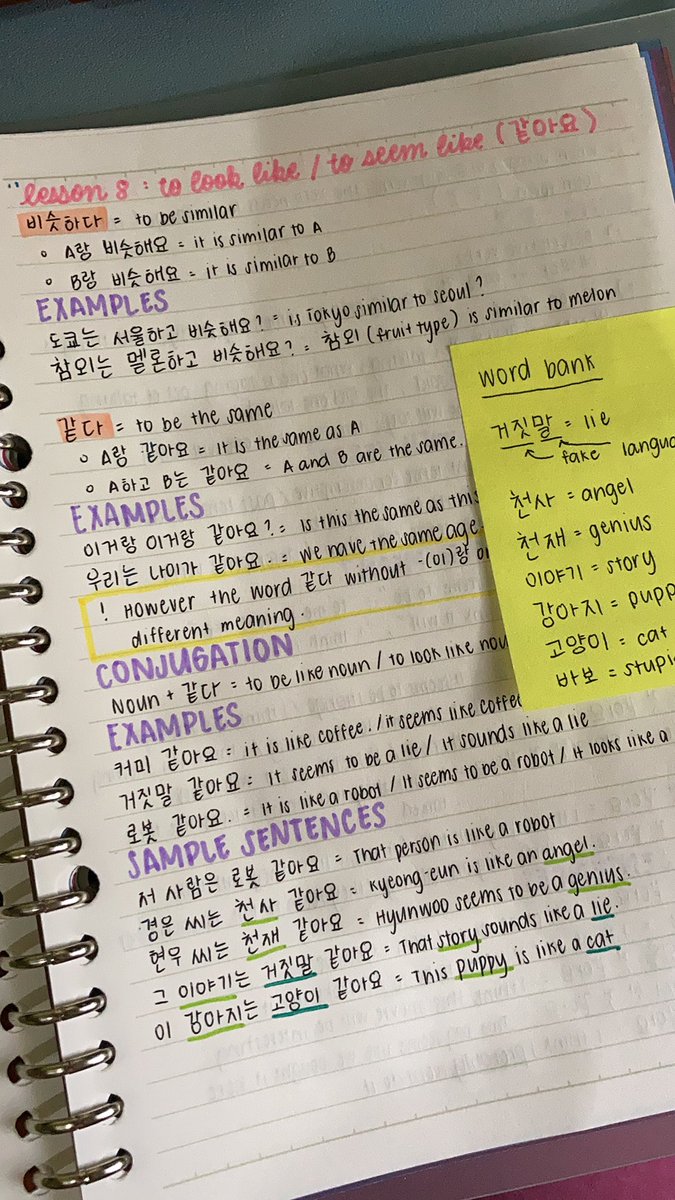 "lesson 8 : to look like / to seem like (같아요)
비슷하다 = to be similar
◦ A랑 비슷해요 = it is similar to A
◦ B랑 비슷해요 = it is similar to B
EXAMPLES
도쿄는 서울하고 비슷해요? = is Tokyo similar to seoul?
참외는 멜론하고 비슷해요? = 참외 (fruit type) is similar to melon
같다 = to be the same
◦ A랑 같아요 = it is the same as A
◦ A하고 B는 같아요 = A and B are the same.
EXAMPLES
이거랑 이거랑 같아요? = Is this the same as this
우리는 나이가 같아요. = we have the same age
! However the word 같다 without -(이)랑
different meaning.
CONJUGATION
Noun + 같다 = to be like noun / to look like
EXAMPLES
커미 같아요 = it is like coffee. / it seems like coffee
거짓말 같아요 = It seems to be a lie / it sounds like a lie
로봇 같아요. = It is like a robot / It seems to be a robot / it looks like a
SAMPLE SENTENCES
저 사람은 로봇 같아요 = That person is like a robot
경은 씨는 천사 같아요 = Kyeong-eun is like an angel.
현우 씨는 천재 같아요 = Hyunwoo seems to be a genius.
그 이야기는 거짓말 같아요 = That story sounds like a lie.
이 강아지는 고양이 같아요 = This puppy is like a cat
word bank
거짓말 = lie
fake langua
천사 = angel
천재 = genius
이야기 = story
강아지 = pupp
고양이 = cat
바보 = stupi